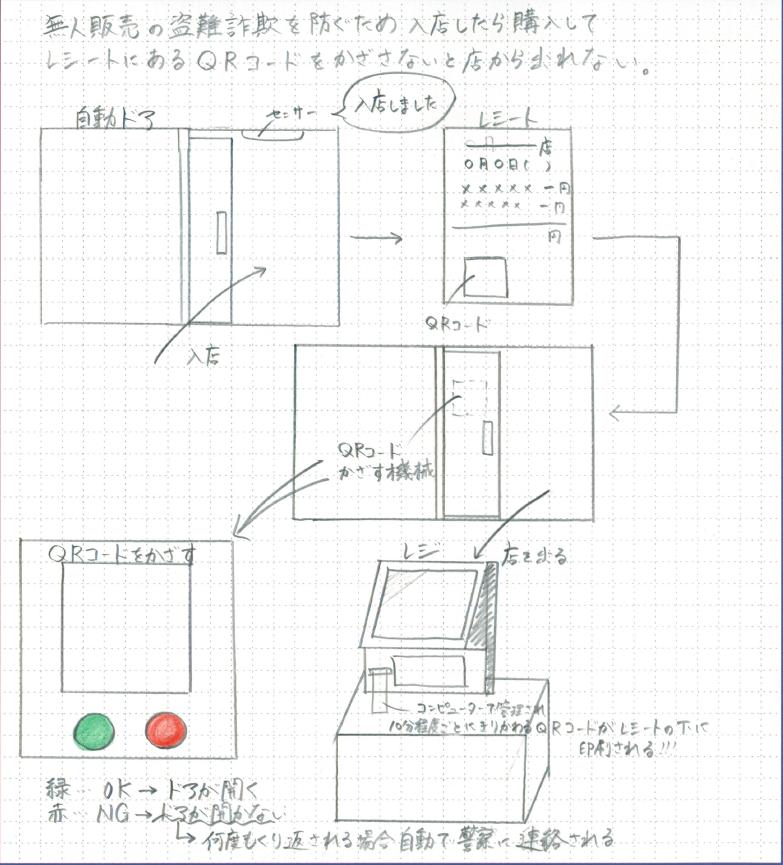 無人販売の盗難詐欺を防ぐため入店したら購入して
レシートにあるQRコードをかざさないと店から出れない。
自動ドア
センサー
入店しました
レシート
店
0月0日( )
××××× 一円
××××× 一円
円
QRコード
入店
QRコード
かざす機械
QRコードをかざす
レジ
店を出る
コンピューターで管理され
10分程度ごとにきりかわるQRコードがレシートの下に
印刷される!!!
緑… OK→ドアが開く
赤… NG→ドアが開かない
↳何度もくり返される場合自動で警察に連絡される